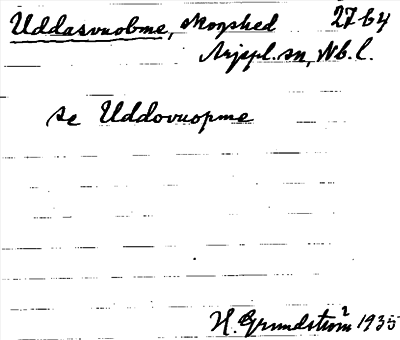 Uddasvuobme, skogshed 27 b 4
Arjepl. sn, Nb. l.
se Uddovuopme
H. Grundström² 1935